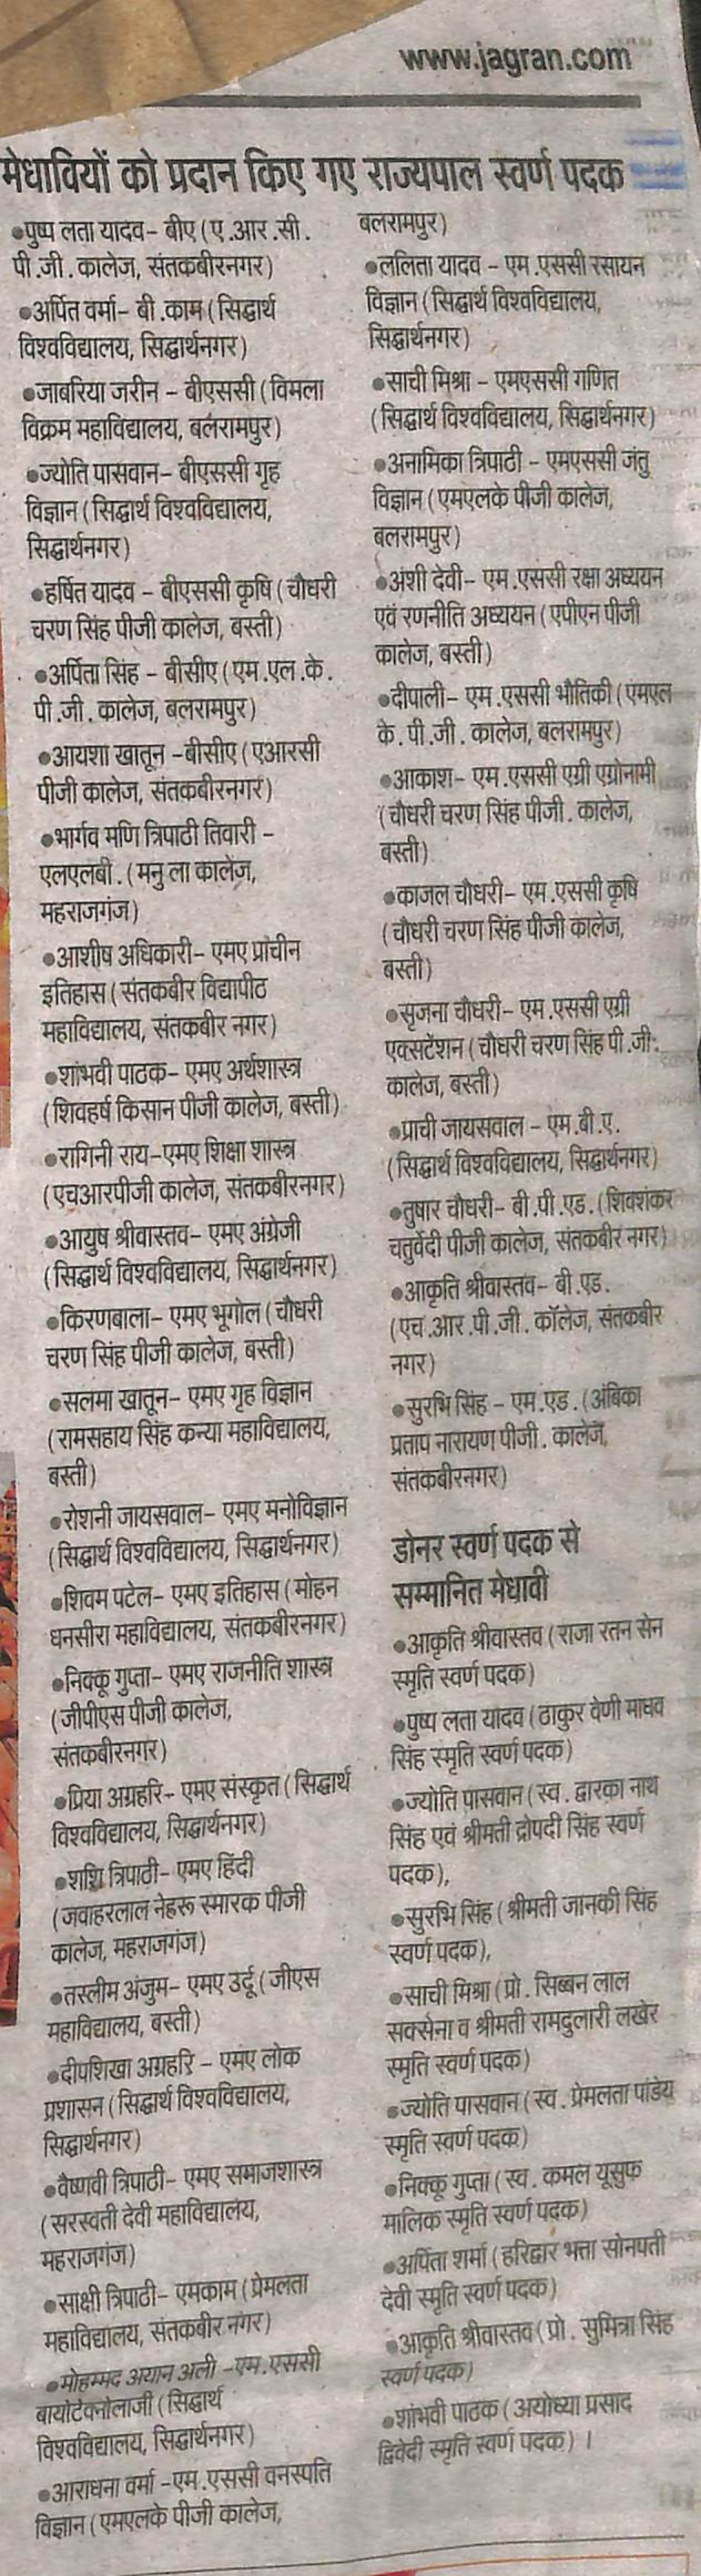 www.jagran.com
मेधावियों को प्रदान किए गए राज्यपाल स्वर्ण पदक
●पुष्प लता यादव- बीए (ए.आर.सी.
पी.जी. कालेज, संतकबीरनगर)
●अर्पित वर्मा- बी.काम (सिद्धार्थ
विश्वविद्यालय, सिद्धार्थनगर)
●जाबरिया जरीन - बीएससी (विमला
विक्रम महाविद्यालय, बलरामपुर)
●ज्योति पासवान- बीएससी गृह
विज्ञान (सिद्धार्थ विश्वविद्यालय,
सिद्धार्थनगर)
●हर्षित यादव - बीएससी कृषि (चौधरी
चरण सिंह पीजी कालेज, बस्ती)
●अर्पिता सिंह - बीसीए (एम.एल.के.
पी.जी. कालेज, बलरामपुर)
●आयशा खातून -बीसीए (एआरसी
पीजी कालेज, संतकबीरनगर)
●भार्गव मणि त्रिपाठी तिवारी -
एलएलबी. (मनु ला कालेज,
महराजगंज)
●आशीष अधिकारी- एमए प्राचीन
इतिहास (संतकबीर विद्यापीठ
महाविद्यालय, संतकबीर नगर)
●शांभवी पाठक- एमए अर्थशास्त्र
(शिवहर्ष किसान पीजी कालेज, बस्ती)
●रागिनी राय-एमए शिक्षा शास्त्र
(एचआरपीजी कालेज, संतकबीरनगर)
●आयुष श्रीवास्तव- एमए अंग्रेजी
(सिद्धार्थ विश्वविद्यालय, सिद्धार्थनगर)
●किरणबाला- एमए भूगोल (चौधरी
चरण सिंह पीजी कालेज, बस्ती)
●सलमा खातून- एमए गृह विज्ञान
(रामसहाय सिंह कन्या महाविद्यालय,
बस्ती)
●रोशनी जायसवाल- एमए मनोविज्ञान
(सिद्धार्थ विश्वविद्यालय, सिद्धार्थनगर)
●शिवम पटेल- एमए इतिहास (मोहन
धनसीरा महाविद्यालय, संतकबीरनगर)
●निक्कू गुप्ता- एमए राजनीति शास्त्र
(जीपीएस पीजी कालेज,
संतकबीरनगर)
●प्रिया अग्रहरि- एमए संस्कृत (सिद्धार्थ
विश्वविद्यालय, सिद्धार्थनगर)
●शशि त्रिपाठी- एमए हिंदी
(जवाहरलाल नेहरू स्मारक पीजी
कालेज, महराजगंज)
●तस्लीम अंजुम- एमए उर्दू (जीएस
महाविद्यालय, बस्ती)
●दीपशिखा अग्रहरि - एमए लोक
प्रशासन (सिद्धार्थ विश्वविद्यालय,
सिद्धार्थनगर)
●वैष्णवी त्रिपाठी- एमए समाजशास्त्र
(सरस्वती देवी महाविद्यालय,
महराजगंज)
●साक्षी त्रिपाठी- एमकाम (प्रेमलता
महाविद्यालय, संतकबीर नगर)
●मोहम्मद अयान अली -एम.एससी
बायोटेक्नोलाजी (सिद्धार्थ
विश्वविद्यालय, सिद्धार्थनगर)
●आराधना वर्मा -एम.एससी वनस्पति
विज्ञान (एमएलके पीजी कालेज,
बलरामपुर)
●ललिता यादव - एम.एससी रसायन
विज्ञान (सिद्धार्थ विश्वविद्यालय,
सिद्धार्थनगर)
●साची मिश्रा - एमएससी गणित
(सिद्धार्थ विश्वविद्यालय, सिद्धार्थनगर)
●अनामिका त्रिपाठी - एमएससी जंतु
विज्ञान (एमएलके पीजी कालेज,
बलरामपुर)
●अंशी देवी- एम.एससी रक्षा अध्ययन
एवं रणनीति अध्ययन (एपीएन पीजी
कालेज, बस्ती)
●दीपाली- एम.एससी भौतिकी (एमएल
के. पी.जी. कालेज, बलरामपुर)
●आकाश- एम.एससी एग्री एग्रोनामी
(चौधरी चरण सिंह पीजी. कालेज,
बस्ती)
●काजल चौधरी- एम.एससी कृषि
(चौधरी चरण सिंह पीजी कालेज,
बस्ती)
●सृजना चौधरी- एम.एससी एग्री
एक्सटेंशन (चौधरी चरण सिंह पी.जी.
कालेज, बस्ती)
●प्राची जायसवाल - एम.बी.ए.
(सिद्धार्थ विश्वविद्यालय, सिद्धार्थनगर)
●तुषार चौधरी- बी.पी.एड. (शिवशंकर
चतुर्वेदी पीजी कालेज, संतकबीर नगर)
●आकृति श्रीवास्तव- बी.एड.
(एच.आर.पी.जी. कॉलेज, संतकबीर
नगर)
●सुरभि सिंह - एम.एड. (अंबिका
प्रताप नारायण पीजी. कालेज,
संतकबीरनगर)
डोनर स्वर्ण पदक से
सम्मानित मेधावी
●आकृति श्रीवास्तव (राजा रतन सेन
स्मृति स्वर्ण पदक)
●पुष्प लता यादव (ठाकुर वेणी माधव
सिंह स्मृति स्वर्ण पदक)
●ज्योति पासवान (स्व. द्वारका नाथ
सिंह एवं श्रीमती द्रोपदी सिंह स्वर्ण
पदक),
●सुरभि सिंह (श्रीमती जानकी सिंह
स्वर्ण पदक),
●साची मिश्रा (प्रो. सिब्बन लाल
सक्सेना व श्रीमती रामदुलारी लखेर
स्मृति स्वर्ण पदक)
●ज्योति पासवान (स्व. प्रेमलता पांडेय
स्मृति स्वर्ण पदक)
●निक्कू गुप्ता (स्व. कमल यूसुफ
मालिक स्मृति स्वर्ण पदक)
●अर्पिता शर्मा (हरिद्वार भत्ता सोनपती
देवी स्मृति स्वर्ण पदक)
●आकृति श्रीवास्तव (प्रो. सुमित्रा सिंह
स्वर्ण पदक)
●शांभवी पाठक (अयोध्या प्रसाद
द्विवेदी स्मृति स्वर्ण पदक) ।